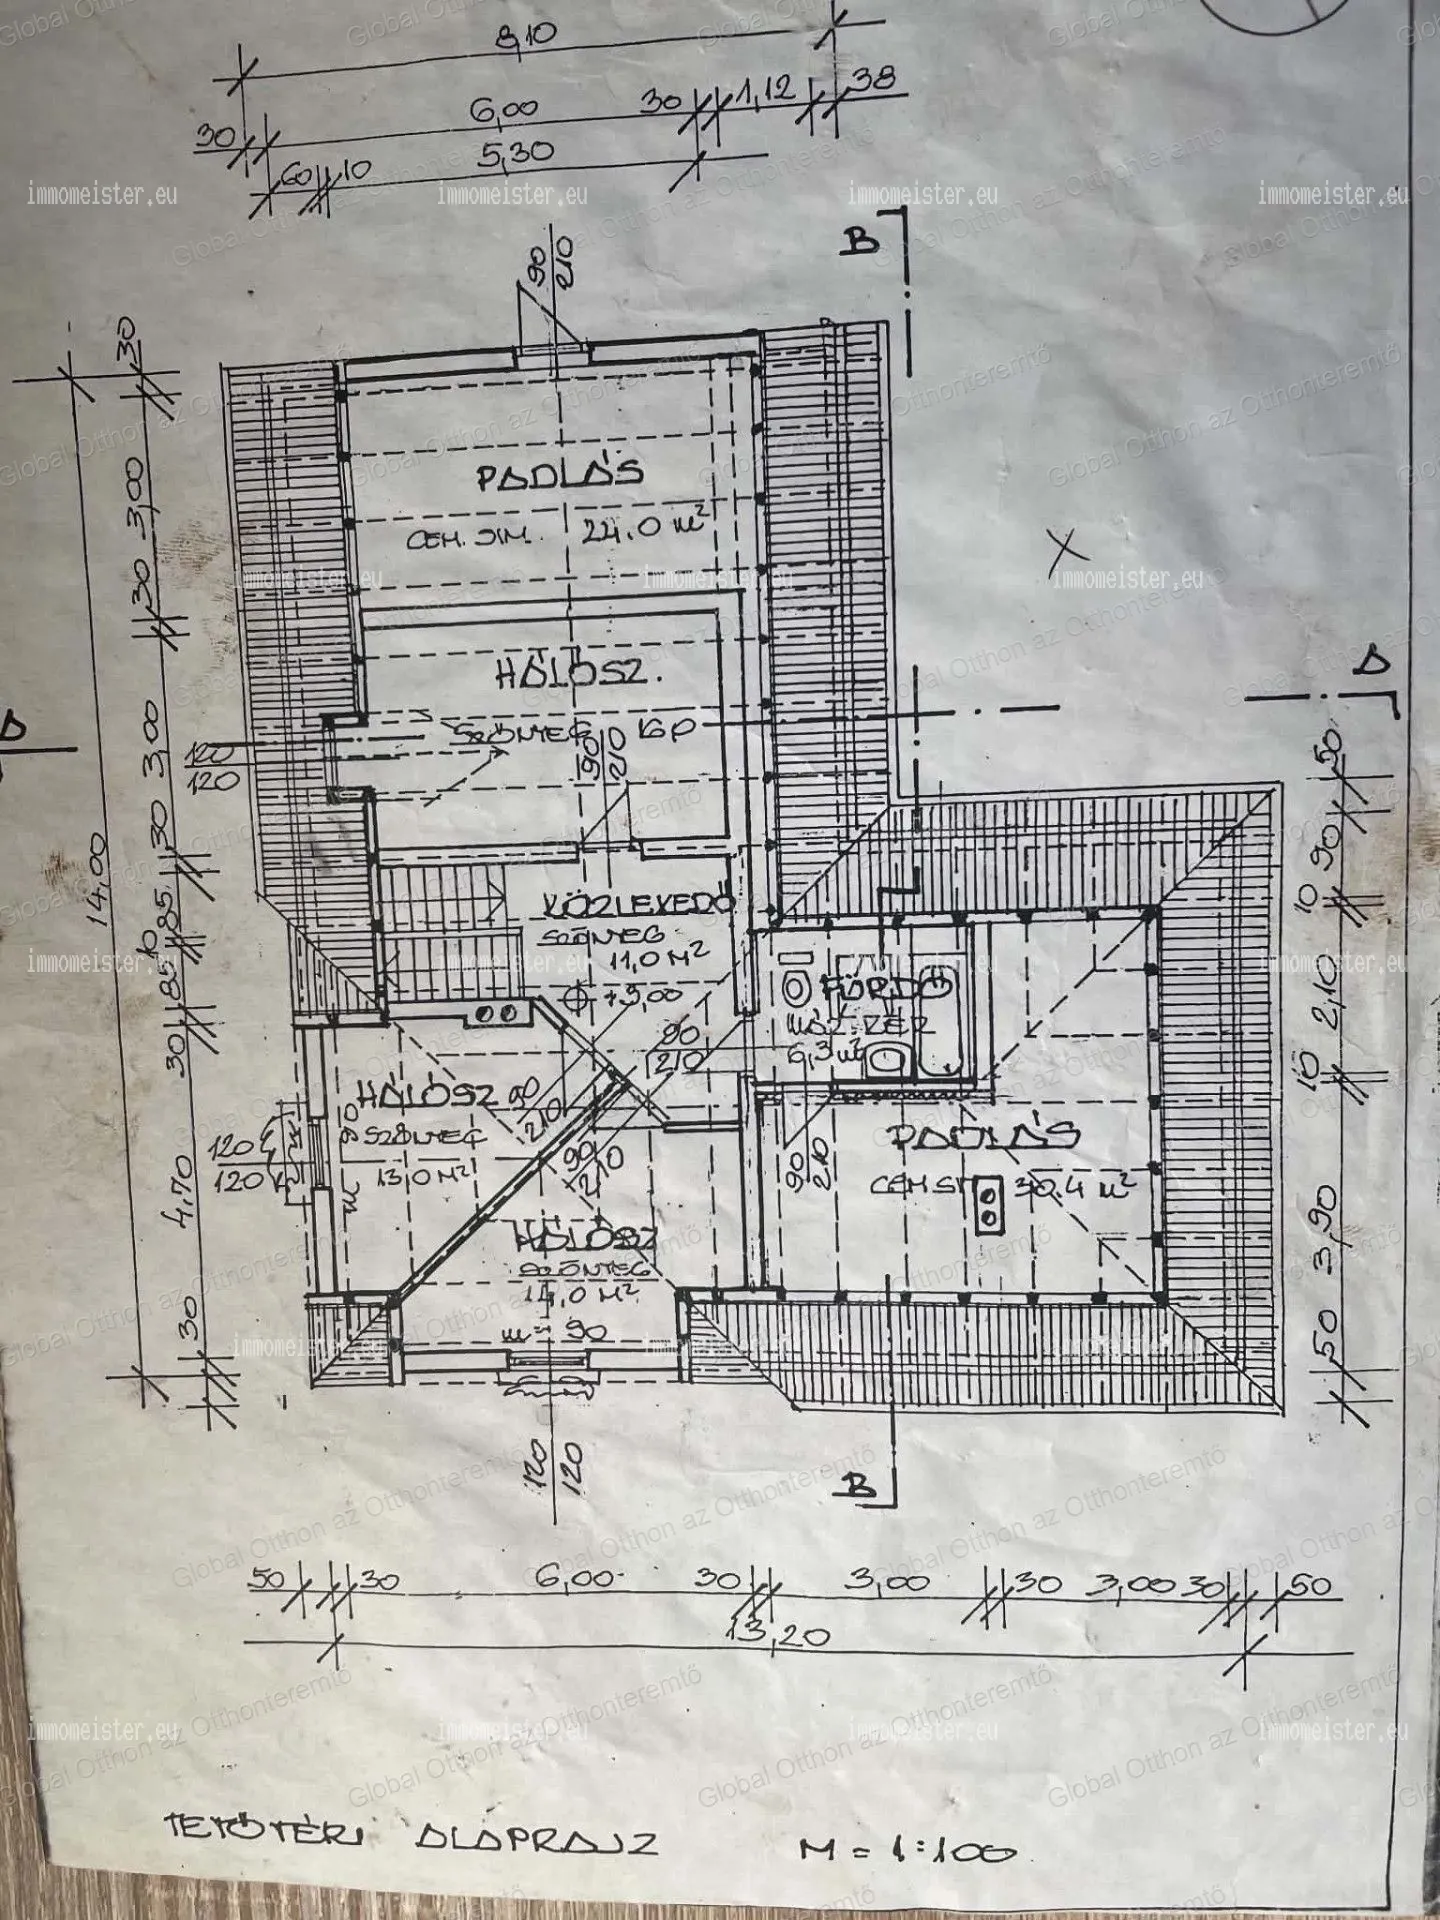 8,10
30 6,00 30 1,12 38
60 10 5,30
90
210
B
14,00
30 3,00 30 3,00 30 85 10 85 30 4,70 30
PADLÁS
CEM. SIM. 24.0 m²
HÁLÓSZ.
SZŐNYEG
90
210
120
120
D
D
KÖZLEKEDŐ
SZŐNYEG
11,0 M²
+3,00
FÜRDŐ
MÁZ.
6,3 m²
90
210
HÁLÓSZ
SZŐNYEG
13,0 M²
90
210
90
210
120
120
90
HÁLÓSZ
SZŐNYEG
14,0 M²
m= 90
120
120
90
210
PADLÁS
CEM.SI 30.4 m²
50 90 10 2,10 10 3,90 50
B
50 30 6,00 30 3,00 30 3,00 30 50
13,20
TETŐTÉRI ALAPRAJZ M = 1:100
immomeister.eu
Global Otthon az Otthonteremtő